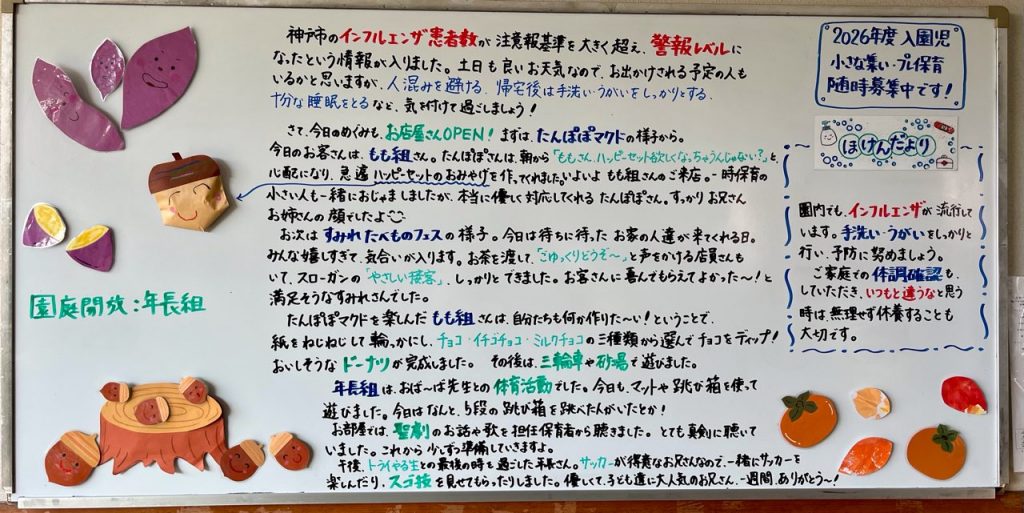 神戸市のインフルエンザ患者数が注意報基準を大きく超え、警報レベルに
なったという情報が入りました。土日も良いお天気なので、お出かけされる予定の人も
いるかと思いますが、人混みを避ける、帰宅後は手洗い・うがいをしっかりとする、
十分な睡眠をとるなど、気を付けて過ごしましょう!
さて、今日のめぐみも、お店屋さんOPEN! まずは、たんぽぽマクドの様子から。
今日のお客さんは、もも組さん。たんぽぽさんは、朝から「ももさん、ハッピーセット欲しくなっちゃうんじゃない?」と、
心配になり、急遽ハッピーセットのおみやげを作ってくれました。いよいよもも組さんのご来店。一時保育の
小さい人も一緒におじゃましましたが、本当に優しく対応してくれるたんぽぽさん。すっかりお兄さん
お姉さんの顔でしたよ
お次はすみれたべものフェスの様子。今日は待ちに待ったお客の人達が来てくれる日。
みんな嬉しすぎて、気合いが入ります。お茶を渡して、「ごゆっくりどうぞ〜」と声をかける店員さんも
いて、スローガンの「やさしい接客」、しっかりとできました。お客さんに喜んでもらえてよかった〜!と
満足そうなすみれさんでした。
たんぽぽマクドを楽しんだもも組さんは、自分たちも何か作りた〜い!ということで、
紙をねじねじして輪っかにし、チョコ・イチゴチョコ・ミルクチョコの三種類から選んでチョコをディップ!
おいしそうなドーナツが完成しました。その後は、三輪車や砂場で遊びました。
年長組は、おば〜ば先生との体育活動でした。今日も、マットや跳び箱を使って
遊びました。今日はなんと、5段の跳び箱を跳べたんがいたとか!
お部屋では、聖劇のお話や歌を担任保育者から聴きました。とても真剣に聴いて
いました。これから少しずつ準備していきますよ。
午後、トライやる生との最後の時も過ごした年長さん。サッカーが得意なお兄さんなので、一緒にサッカーを
楽しんだり、スゴ技を見せてもらったりしました。優しくて、子ども達に大人気のお兄さん、一週間、ありがとう〜!
園庭開放:年長組
2026年度 入園児
小さな集い・プレ保育
随時募集中です!
ほけんだより
園内でも、インフルエンザが流行して
います。手洗い・うがいをしっかりと
行い、予防に努めましょう。
ご家庭での体調確認も、
していただき、いつもと違うなと思う
時は、無理せず休養することも
大切です。